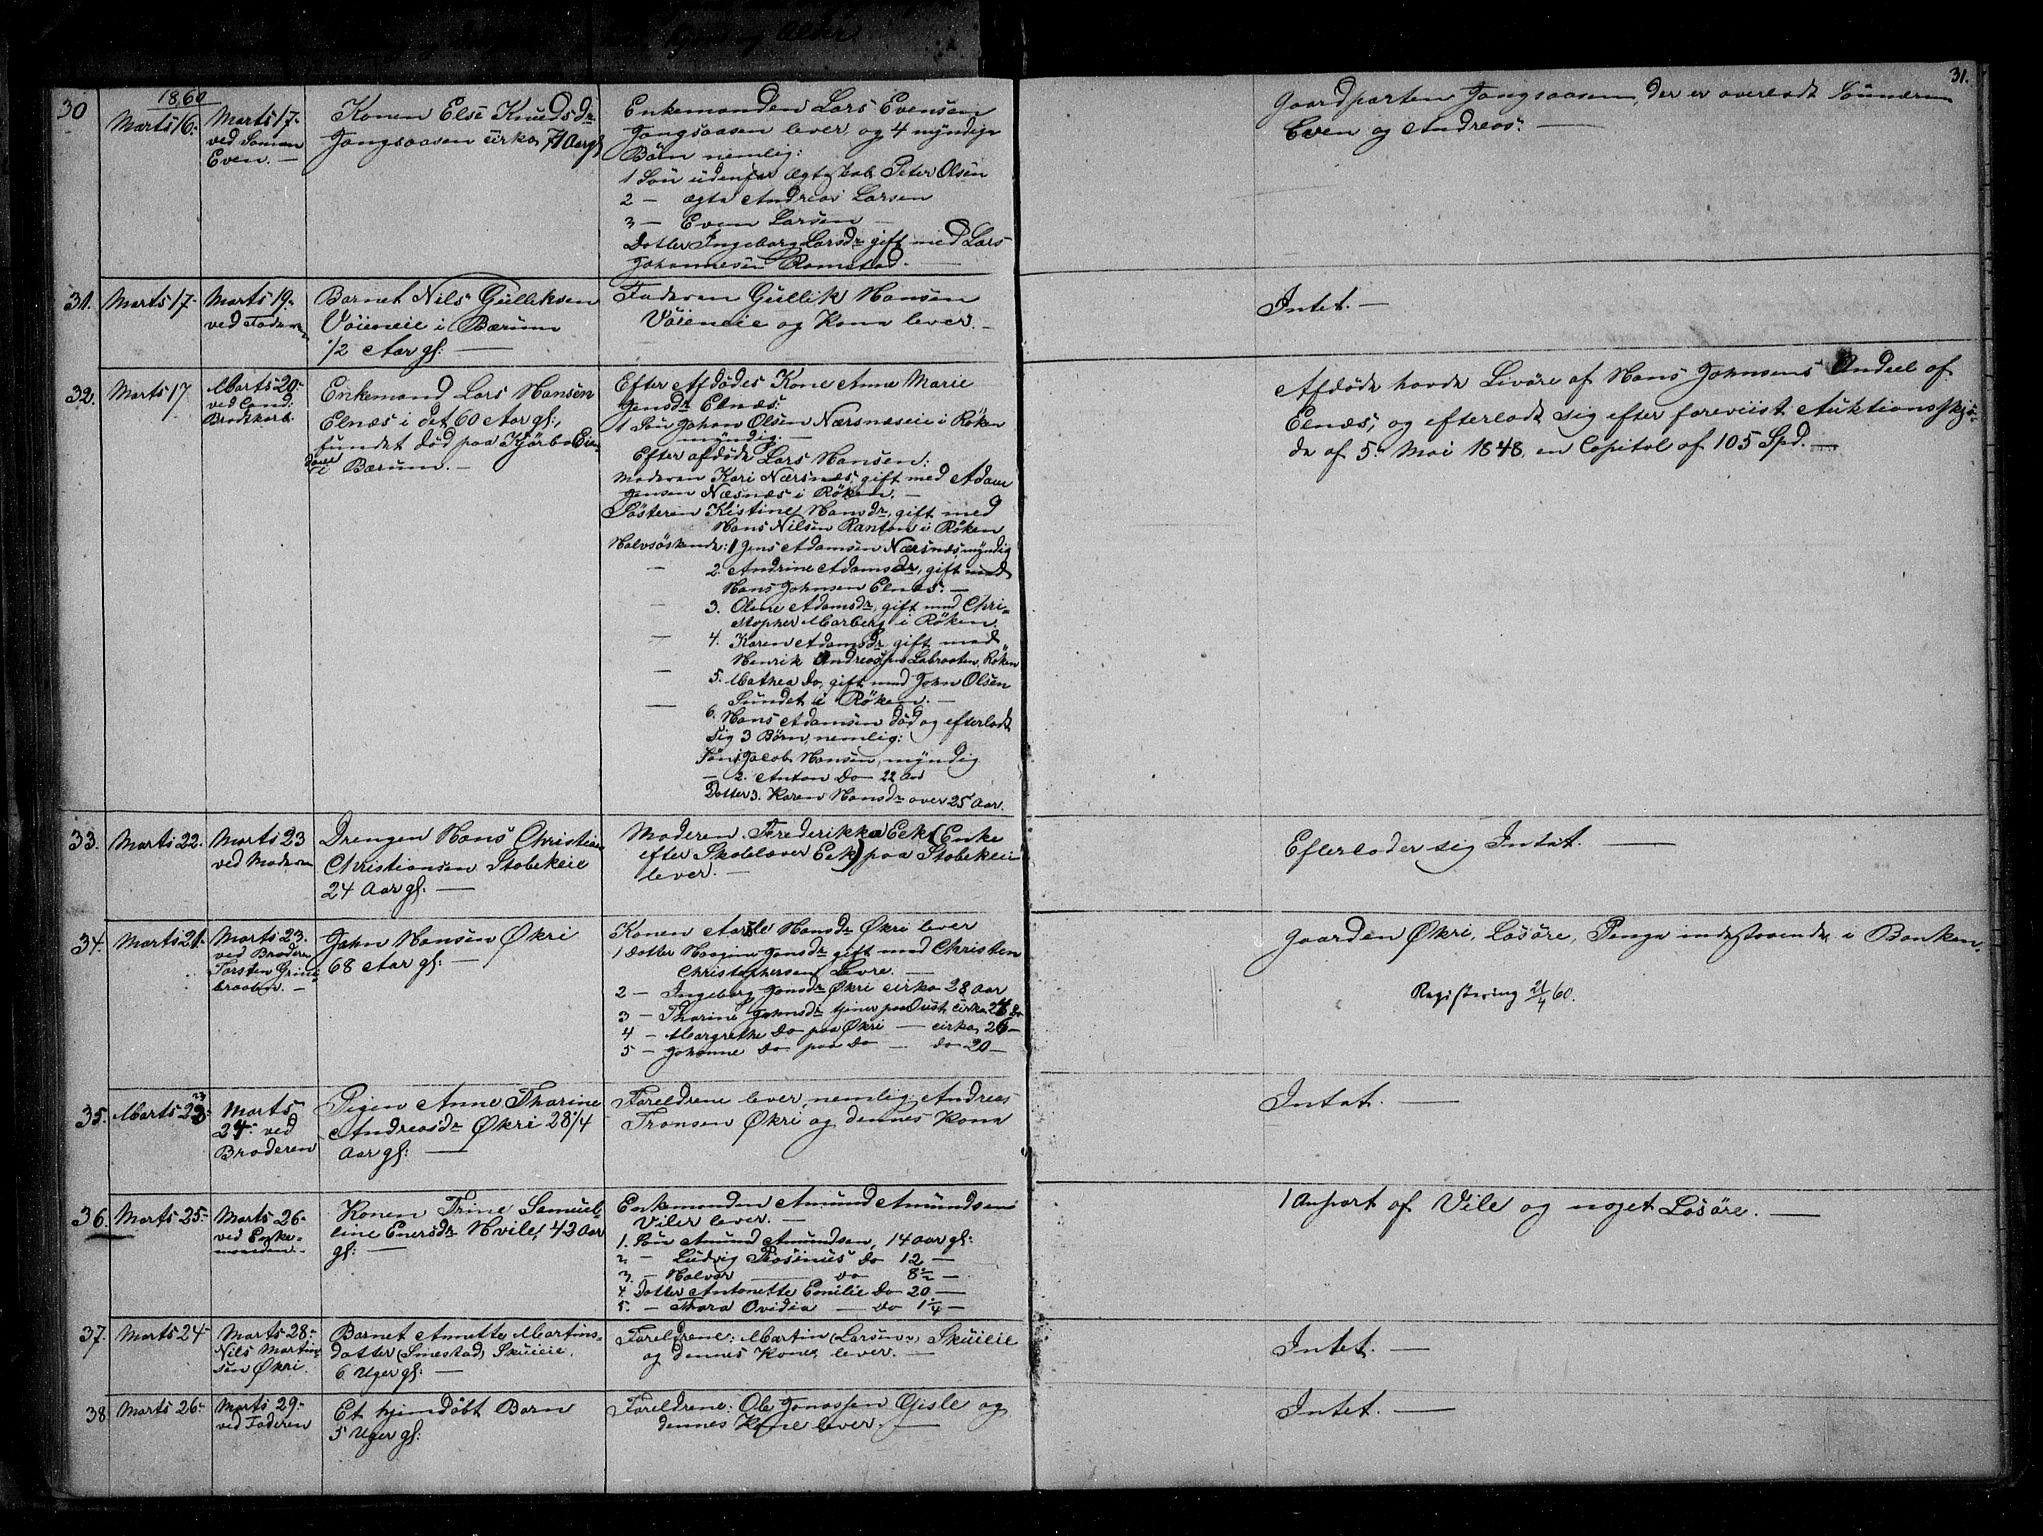 Alder
1860
31.
30
Marts 16-
Marts 17-
ved Sønnen
Even. —
Konen Else Knudsdr
Jongsaasen cirka 71 Aar gl
Enkemanden Lars Evensen
Jongsaasen lever, og 4 myndige
Børn nemlig:
1 Søn udenfor Ægteskab Peter Olsen
2 — ægte Andreas Larsen
3 — Even Larsen —
Dotter Ingeborg Larsdr gift med Lars
Johannesen Ramstad. —
Gaardparten Jongsaasen, der er overladt Sønnerne
Even og Andreas. —
31.
Marts 17-
Marts 19-
ved Faderen
Barnet Nils Gulliksen
Vøieneie i Bærum
1/2 Aar gl: —
Faderen Gullik Hansen
Vøieneie og Kone lever. —
Intet. —
32.
Marts 17
Marts 20-
ved Cand:
Brodtkorb.
Enkemand Lars Hansen
Elnæs i det 60 Aar gl:,
fundet død paa Kjørbo Ein-
dele
i Bærum. —
Efter Afdødes Kone Anne Marie
Jensdr Elnæs:
1 Søn Johan Olsen Nærsnæseie i Røken
myndig. —
Efter afdøde Lars Hansen:
Moderen Kari Nærsnæs, gift med Adam
Jensen Næsnæs i Røken. —
Søsteren Kistine Hansdr, gift med
Hans Nilsen Ranton i Røken
Halvsøskende: 1 Jens Adamsen Nærsnæs, myndig
— 2. Andrine Adamsdr, gift med
Hans Johnsen Elnæs. —
— 3. Oline Adamsdr, gift med Chri-
stopher Morberg i Røken.
— 4. Karen Adamsdr gift med
Henrik Andreassen Labraaten, Røken
— 5. Mathea do, gift med John Olsen
Sundet i Røken. —
— 6. Hans Adamsen død og efterladt
sig 3 Børn, nemlig:
Søn 1 Jacob Hansen, myndig
— 2. Anton do 22 Aar
Dotter 3. Karen Hansdr over 25 Aar.
Afdøde havde Livøre af Hans Johnsens Andeel af
Elnæs, og efterlodt sig efter foreviist Auktionsskjø-
de af 5 Mai 1848, en Capital af 105 Spd. —
33.
Marts 22.
Marts 23
ved Moderen
Drengen Hans Christian
Christiansen Stobekeie
24 Aar gl: —
Moderen Frederikke Eek (Enke
efter Skolelærer Eek) paa Stobekeie
lever. —
Efterlader sig Intet. —
34.
Marts 21-
Marts 23.
ved Broderen
Torsten Grine-
braaten. —
John Hansen Økri
68 Aar gl: —
Konen Aasle Hansdr Økri lever
1 Dotter Jonsdr gift med Christen
Christophersen Levre. —
2 — Ingeborg Jonsdr Økri cirka 28 Aar
3 — Tharine Johnsdr tjener paa cirka 24 do
4 — Margrethe do paa Økri — cirka 26 —
5 — Johanne do paa do — do 20 —
Gaarden Økri, Løsøre, Penge indestaaende i Banken.
Registering 21/4 60.
35.
Marts 23
Marts
24- ved
Broderen
Pigen Anne Tharine
Andreasdr Økri 28 1/4
Aar gl: —
Forældrene lever, nemlig Andreas
Tronsen Økri og dennes Kone
Intet. —
36.
Marts 25-
Marts 26-
ved Enke-
manden.
Konen Trine Samuel-
line Enersdr Hvile, 42 Aar
gl: —
Enkemanden Amund Amundsen
Viler lever. —
1. Søn Amund Amundsen, 14 Aar gl:
2 — Ludvig Rosinus do 12 —
3. — Halvor — do 8 1/2 —
4. Dotter Antonette Emilie do 20 —
5. — Thora Ovidia — do 1 1/4 —
1 Anpart af Vile og noget Løsøre. —
37.
Marts 24
Marts 28-
Nils Martin-
sen Økri.
Barnet Annette Martins-
datter (Smestad) Skuieie.
6 Uger gl: —
Forældrene: Martin (Larsen) Skuieie
og dennes Kone lever. —
Intet. —
38
Marts 26-
Marts 29-
ved Faderen
Et hjemdøbt Barn
5 Uger gl:
Forældrene: Ole Jonassen Gisle og
dennes Kone lever. —
Intet. —